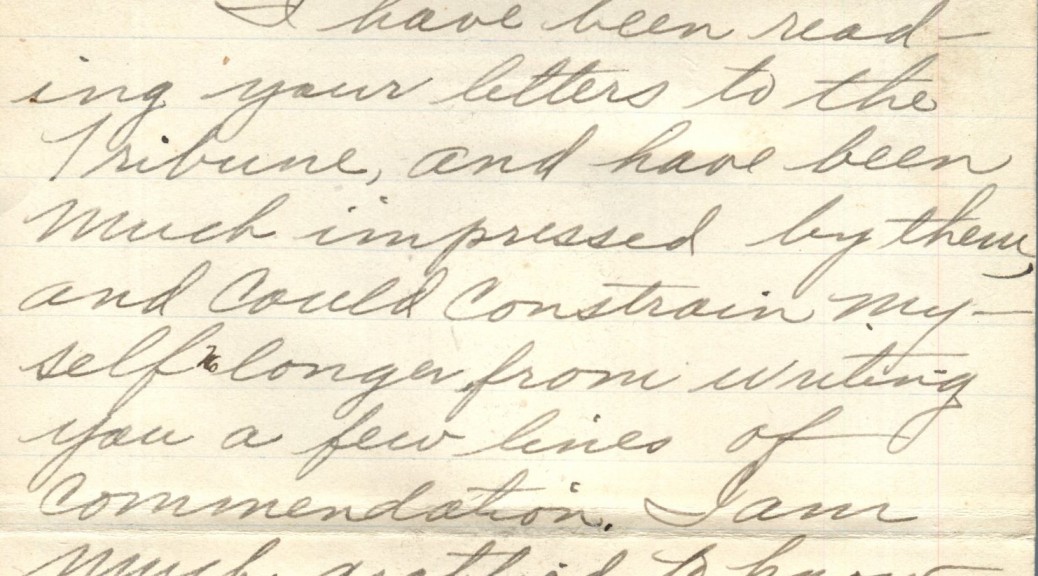 I have been read-
ing your letters to the
Tribune, and have been
much impressed by them,
and could constrain my-
self no longer from writing
you a few lines of
commendation. I am
much gratified to know